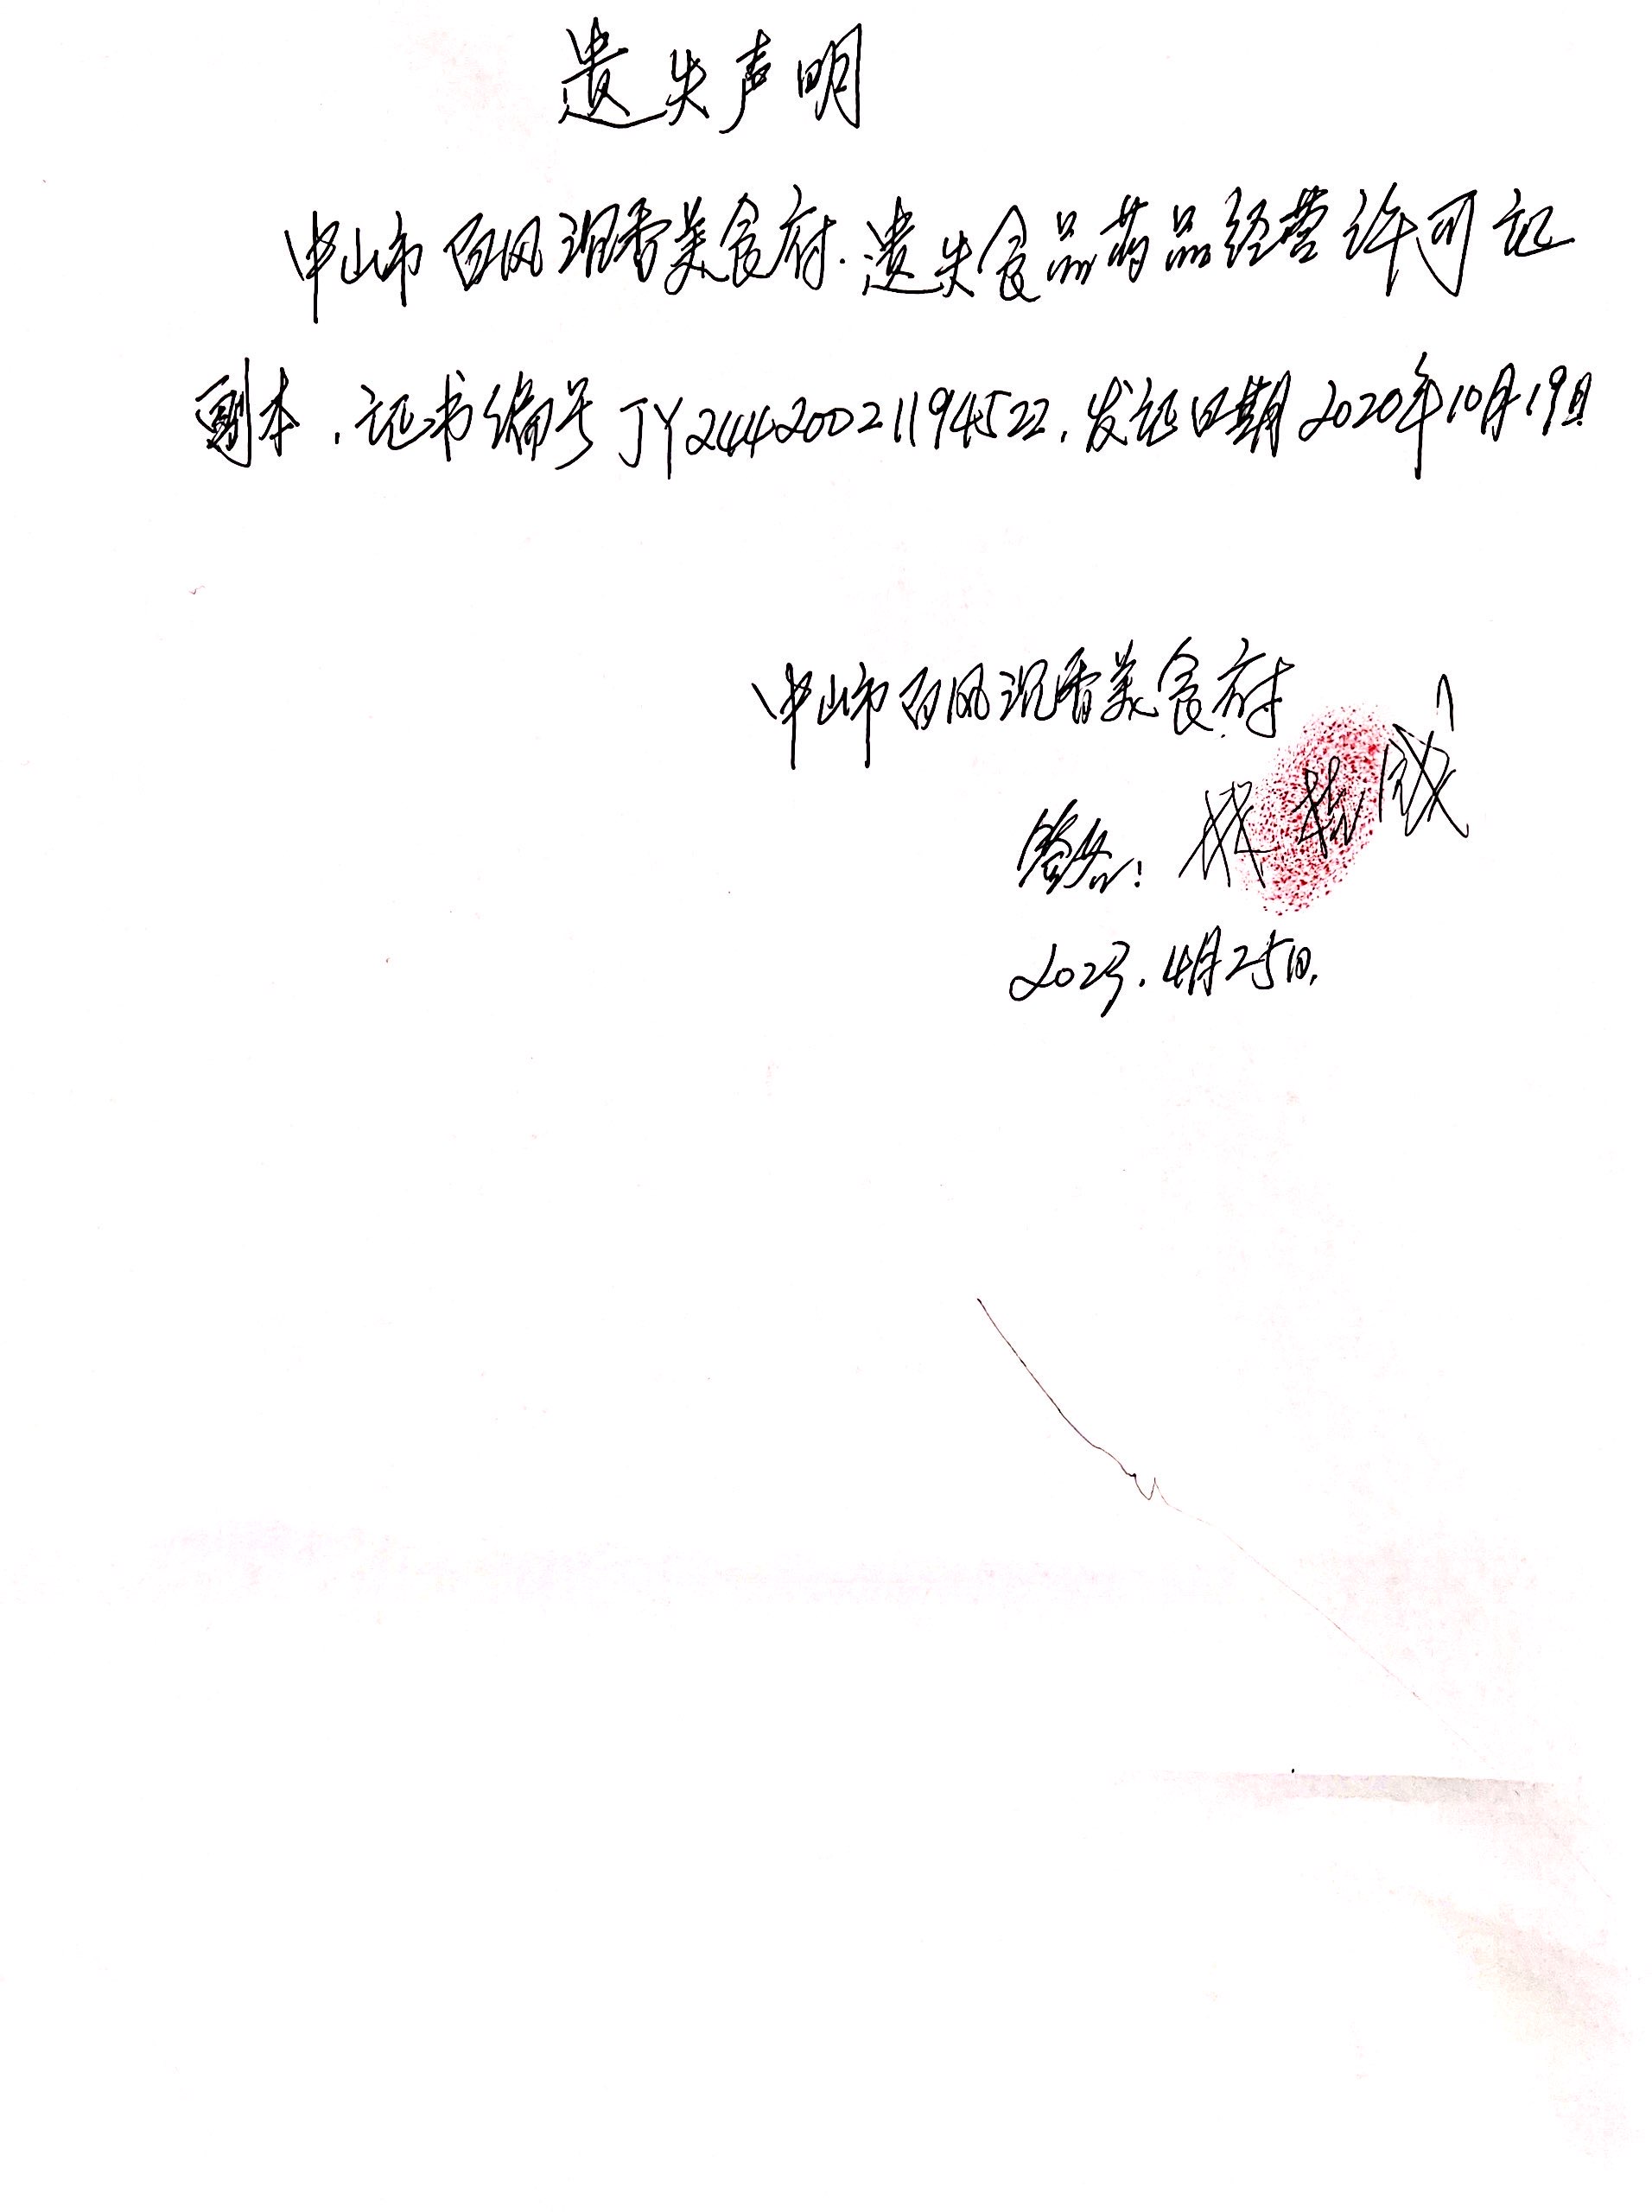 遗失声明
中山市百风沉香美食府.遗失食品药品经营许可证
副本.证书编号JY24420021194522.发证日期2020年10月19日
中山市百风沉香美食府
签名:林
2023.4月25日.